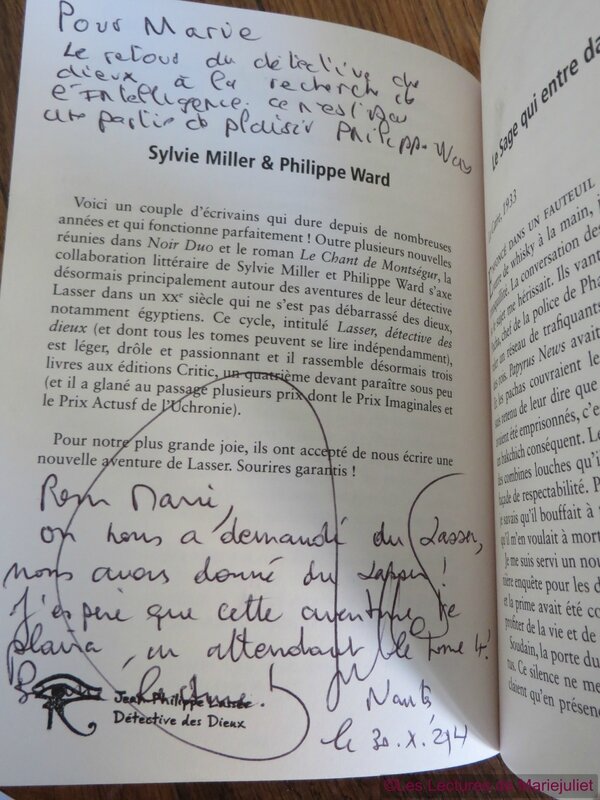 Pour Marie
Le retour du détective des
dieux à la recherche de
l'Intelligence. ce n'est pas
une partie de plaisir Philippe Ward
Sylvie Miller & Philippe Ward
Voici un couple d'écrivains qui dure depuis de nombreuses
années et qui fonctionne parfaitement ! Outre plusieurs nouvelles
réunies dans Noir Duo et le roman Le Chant de Montségur, la
collaboration littéraire de Sylvie Miller et Philippe Ward s'axe
désormais principalement autour des aventures de leur détective
Lasser dans un XXe siècle qui ne s'est pas débarrassé des dieux,
notamment égyptiens. Ce cycle, intitulé Lasser, détective des
dieux (et dont tous les tomes peuvent se lire indépendamment),
est léger, drôle et passionnant et il rassemble désormais trois
livres aux éditions Critic, un quatrième devant paraître sous peu
(et il a glané au passage plusieurs prix dont le Prix Imaginales et
le Prix Actusf de l'Uchronie).
Pour notre plus grande joie, ils ont accepté de nous écrire une
nouvelle aventure de Lasser. Sourires garantis !
Pour Marie,
on nous a demandé du Lasser,
nous avons donné du Lasser !
J'espère que cette aventure te
plaira, en attendant le tome 4 !
Bonne lecture.
Jean-Philippe Lasser
Détective des Dieux
Nantes
le 30.X.214
Le Sage qui entre da
Le Caire, 1933
DANS UN FAUTEUIL
verre de whisky à la main, j
La conversation des
sujet me hérissait. Ils vant
chef de la police de Pha
un réseau de trafiquants
rois. Papyrus News avait
les pachas couvraient le
retenu de leur dire que
été emprisonnés, c'est
bakchich conséquent. Le
des combines louches qu'i
façade de respectabilité. P
savais qu'il bouffait à
qu'il m'en voulait à mort
Je me suis servi un nou
nière enquête pour les d
et la prime avait été co
profiter de la vie et de
Soudain, la porte du
rus. Ce silence ne me
claient qu'en présenc
©Les Lectures de Mariejuliet